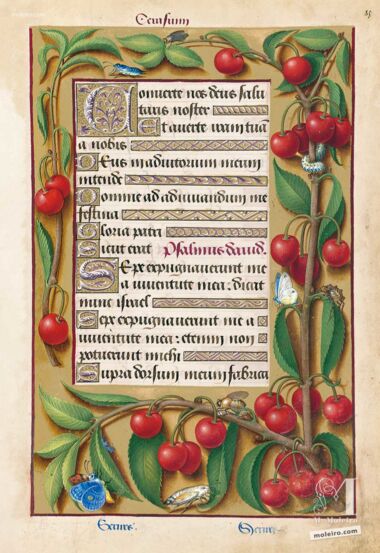 Cerasum
Converte nos deus salu
taris noster
Et averte iram tuã
a nobis
Deus in adiutorium meum
intende
Domine ad adiuvandum me
festina
Gloria patri
Sicut erat Psalmus david.
Sepe expugnaverunt me
a iuventute mea: dicat
nunc israel
Sepe expugnaverunt me a
iuventute mea: etenim non
potuerunt michi
Supra dorsum meum fabrica
M. Moleiro
moleiro.com